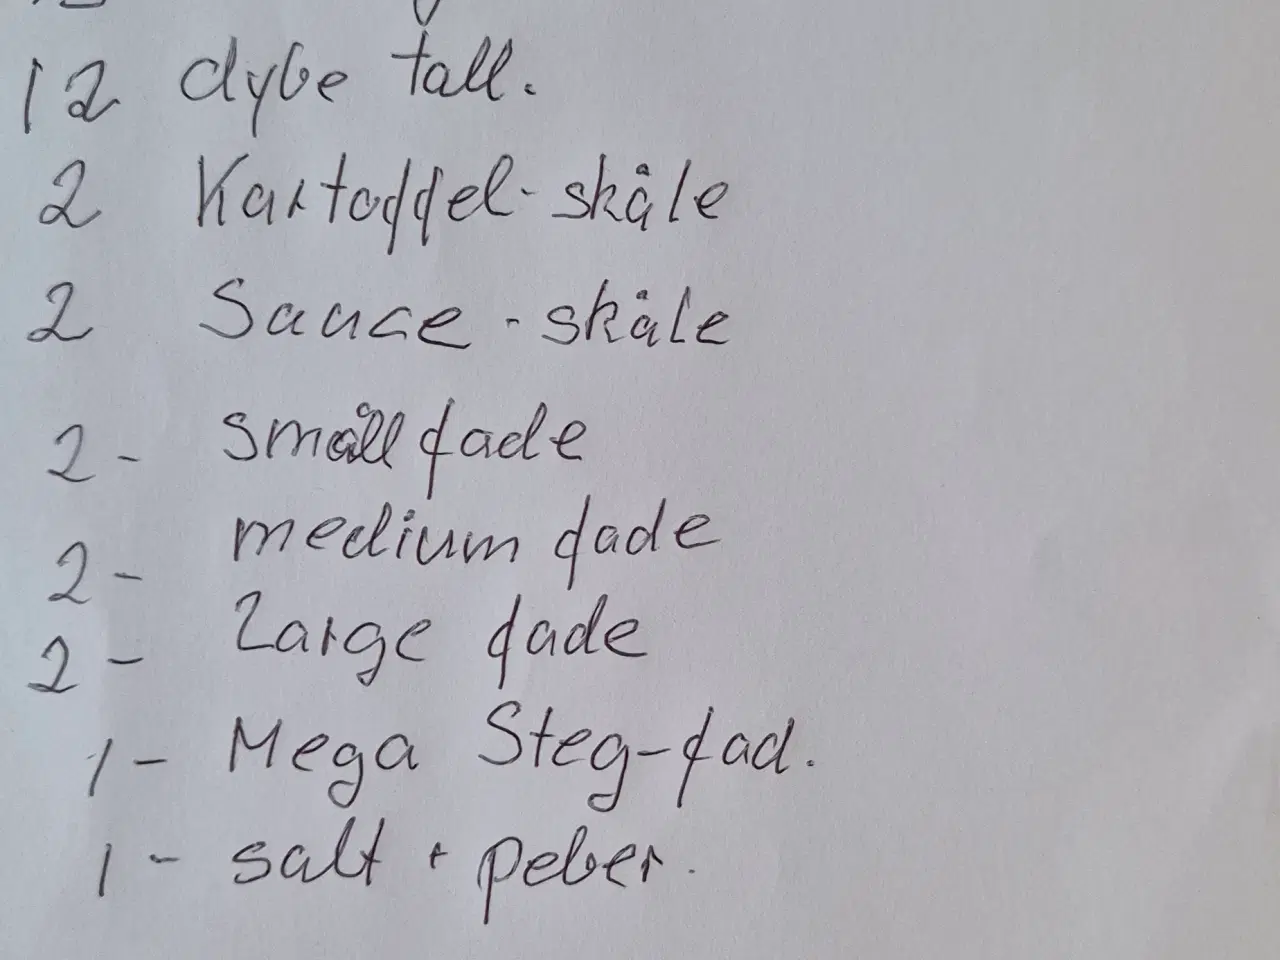 12 dybe tall.
2 Kartoffel-skåle
2 Sauce-skåle
2- småll fade
2- medium fade
2- Large fade
1- Mega Steg-fad.
1- salt + peber.